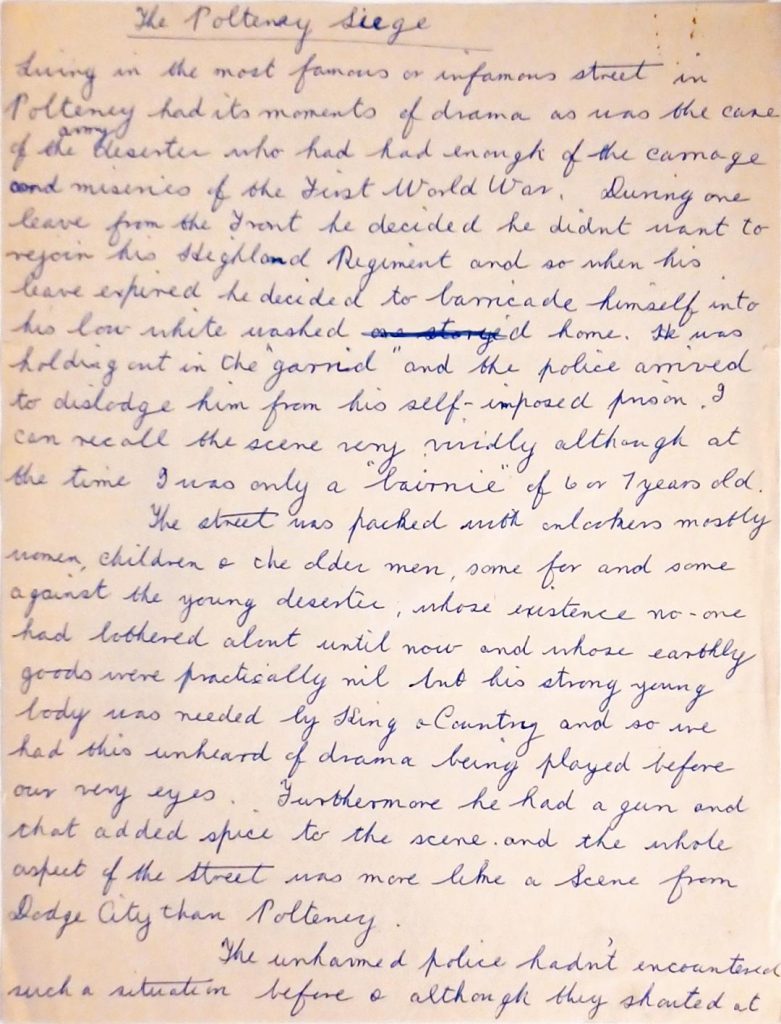 The Polteney Siege
Living in the most famous or infamous street in
Polteney had its moments of drama as was the case
army
of the deserter who had had enough of the carnage
and miseries of the First World War. During one
leave from the Front he decided he didnt want to
rejoin his Highland Regiment and so when his
leave expired he decided to barricade himself into
his low white washed one storyed home. He was
holding out in the "garrid" and the police arrived
to dislodge him from his self-imposed prison. I
can recall the scene very vividly although at
the time I was only a "bairnie" of 6 or 7 years old.
The street was packed with onlookers mostly
women, children & the older men, some for and some
against the young deserter, whose existence no-one
had bothered about until now and whose earthly
goods were practically nil but his strong young
body was needed by King & Country and so we
had this unheard of drama being played before
our very eyes. Furthermore he had a gun and
that added spice to the scene. and the whole
aspect of the street was more like a Scene from
Dodge City than Polteney.
The unharmed police hadn't encountered
such a situation before & although they shouted at